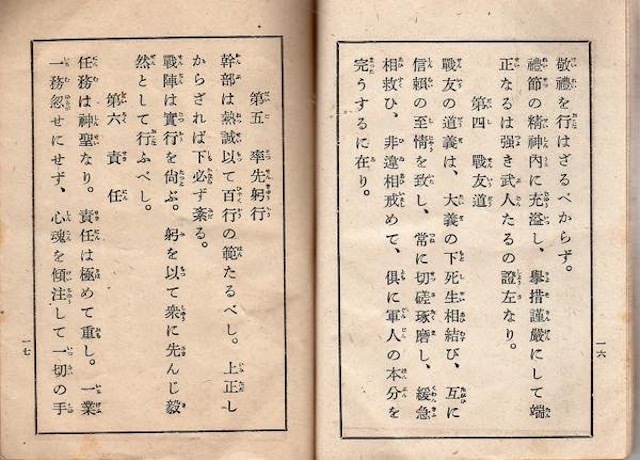 敬禮を行はざるべからず。
禮節の精神內に充溢し、擧措謹嚴にして端
正なるは强き武人たるの證左なり。
第四　戰友道
戰友の道義は、大義の下死生相結び、互に
信賴の至情を致し、常に切磋琢磨し、緩急
相救ひ、非違相戒めて、俱に軍人の本分を
完うするに在り。
一六
第五　率先躬行
幹部は熱誠以て百行の範たるべし。上正し
からざれば下必ず紊る。
戰陣は實行を尙ぶ。躬を以て衆に先んじ毅
然として行ふべし。
第六　責任
任務は神聖なり。責任は極めて重し。一業
一務忽せにせず、心魂を傾注して一切の手
一七